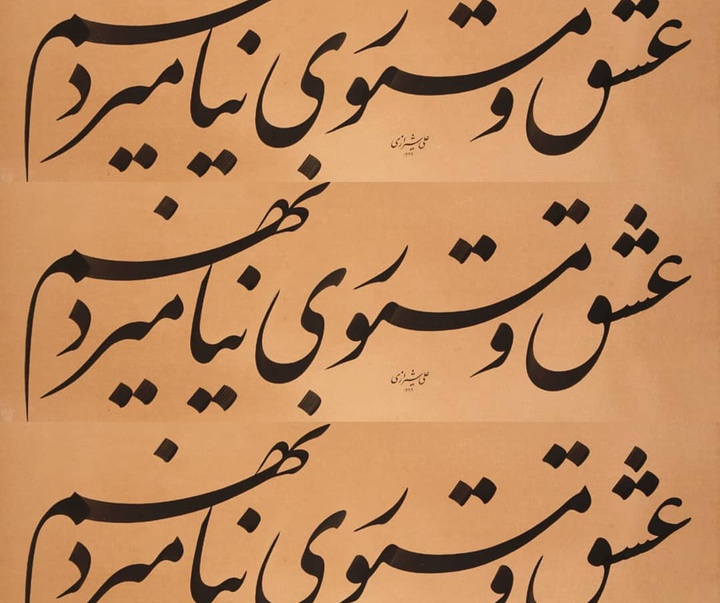 عشق و مستوری نیامیزد بهم
علی شیرازی
عشق و مستوری نیامیزد بهم
علی شیرازی
عشق و مستوری نیامیزد بهم